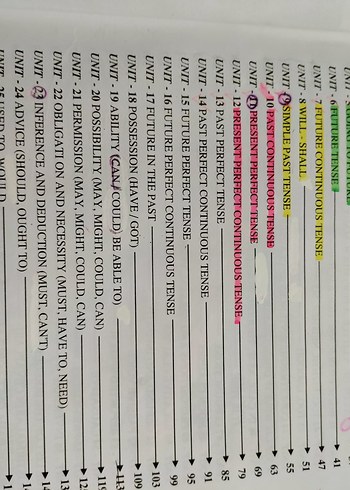 UNIT - 6 FUTURE TENSE 41
UNIT - 7 FUTURE CONTINUOUS TENSE 47
UNIT - 8 WILL - SHALL 51
UNIT - 9 SIMPLE PAST TENSE 55
UNIT - 10 PAST CONTINUOUS TENSE 63
UNIT - 11 PRESENT PERFECT TENSE 69
UNIT - 12 PRESENT PERFECT CONTINUOUS TENSE 79
UNIT - 13 PAST PERFECT TENSE 85
UNIT - 14 PAST PERFECT CONTINUOUS TENSE 91
UNIT - 15 FUTURE PERFECT TENSE 95
UNIT - 16 FUTURE PERFECT CONTINUOUS TENSE 99
UNIT - 17 FUTURE IN THE PAST 103
UNIT - 18 POSSESSION (HAVE / GOT) 109
UNIT - 19 ABILITY (CAN / COULD/ BE ABLE TO) 113
UNIT - 20 POSSIBILITY (MAY, MIGHT, COULD, CAN)
UNIT - 21 PERMISSION (MAY, MIGHT, COULD, CAN)
UNIT - 22 OBLIGATION AND NECESSITY (MUST, HAVE TO, NEED)
UNIT - 23 INFERENCE AND DEDUCTION (MUST, CAN'T)
UNIT - 24 ADVICE (SHOULD, OUGHT TO)
UNIT - 25 USED TO, WOULD